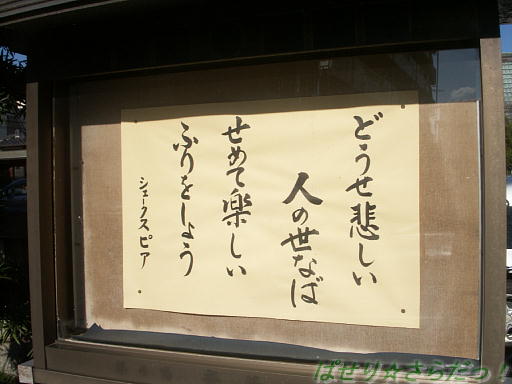 どうせ悲しい
人の世なば
せめて楽しい
ふりをしよう
シェークスピア
ぱせり☆さらだっ!